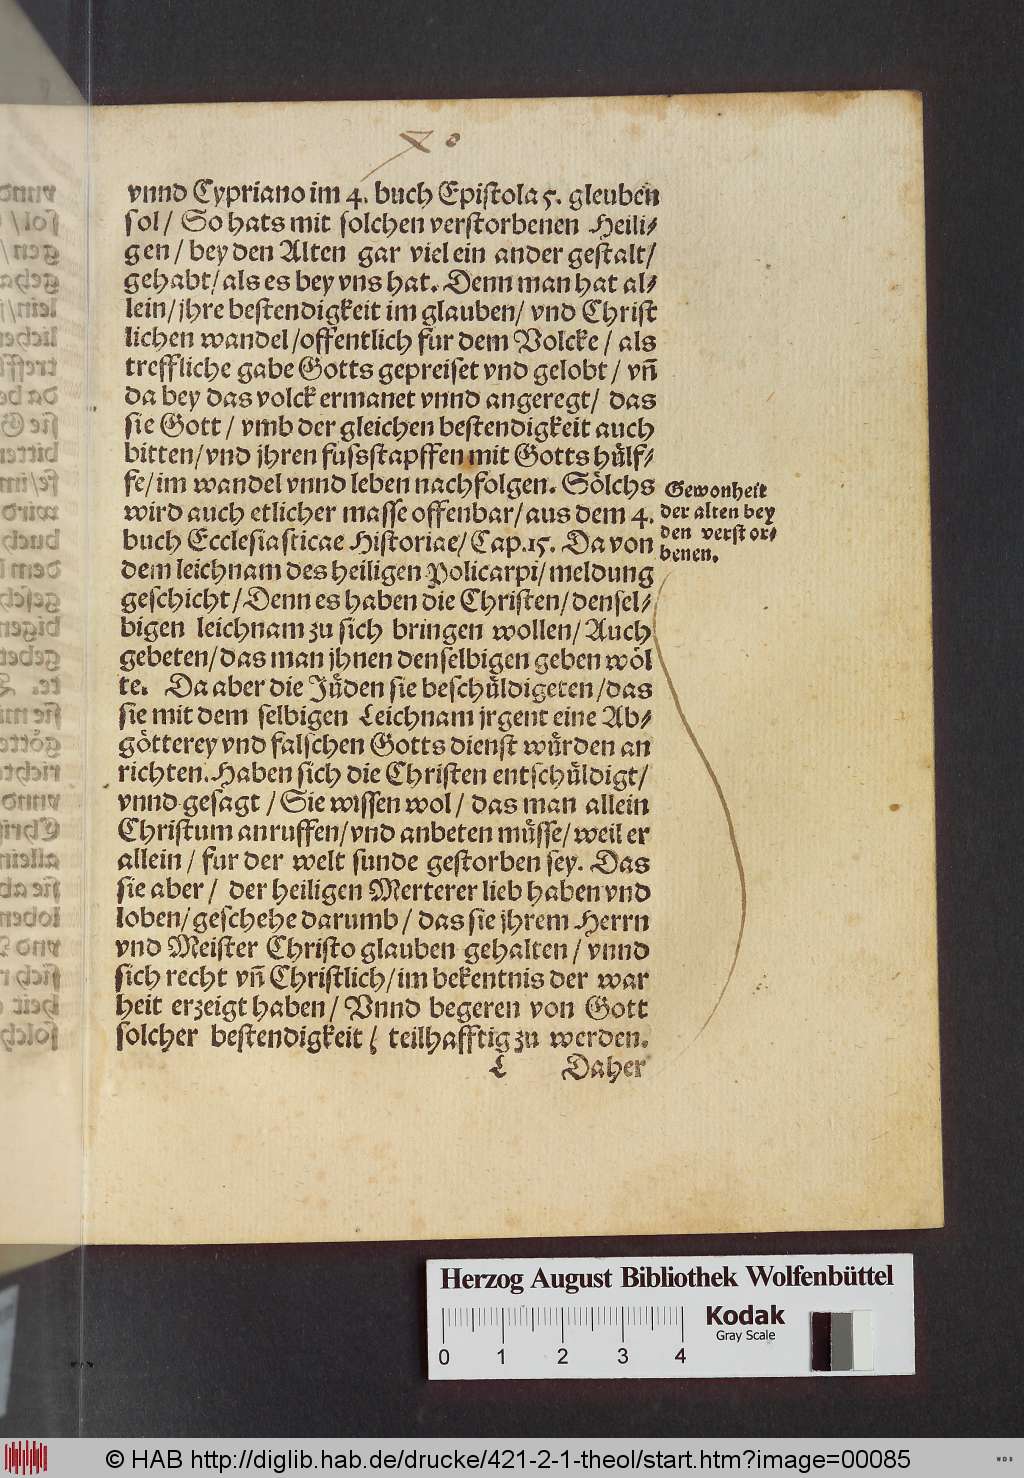 vnnd Cypriano im 4. buch Epistola 5. gleuben
sol / So hats mit solchen verstorbenen Heili-
gen / bey den Alten gar viel ein ander gestalt /
gehabt / als es bey vns hat. Denn man hat al-
lein / jhre bestendigkeit im glauben / vnd Christ
lichen wandel / offentlich fur dem Volcke / als
treffliche gabe Gotts gepreiset vnd gelobt / vn̄
da bey das volck ermanet vnnd angeregt / das
sie Gott / vmb der gleichen bestendigkeit auch
bitten / vnd jhren fussstapffen mit Gotts hülf-
fe / im wandel vnnd leben nachfolgen. Sölchs
wird auch etlicher masse offenbar / aus dem 4.
buch Ecclesiasticae Historiae / Cap. 15. Da von
dem leichnam des heiligen Policarpi / meldung
geschicht / Denn es haben die Christen / densel-
bigen leichnam zu sich bringen wollen / Auch
gebeten / das man jhnen denselbigen geben wöl
te. Da aber die Jüden sie beschüldigeten / das
sie mit dem selbigen Leichnam jrgent eine Ab-
götterey vnd falschen Gotts dienst würden an
richten. Haben sich die Christen entschüldigt /
vnnd gesagt / Sie wissen wol / das man allein
Christum anruffen / vnd anbeten müsse / weil er
allein / fur der welt sunde gestorben sey. Das
sie aber / der heiligen Merterer lieb haben vnd
loben / geschehe darumb / das sie jhrem Herrn
vnd Meister Christo glauben gehalten / vnnd
sich recht vn̄ Christlich / im bekentnis der war
heit erzeigt haben / Vnnd begeren von Gott
solcher bestendigkeit / teilhafftig zu werden.
L Daher
Gewonheit
der alten bey
den verstor-
benen.
Herzog August Bibliothek Wolfenbüttel
0 1 2 3 4
Kodak
Gray Scale
© HAB http://diglib.hab.de/drucke/421-2-1-theol/start.htm?image=00085